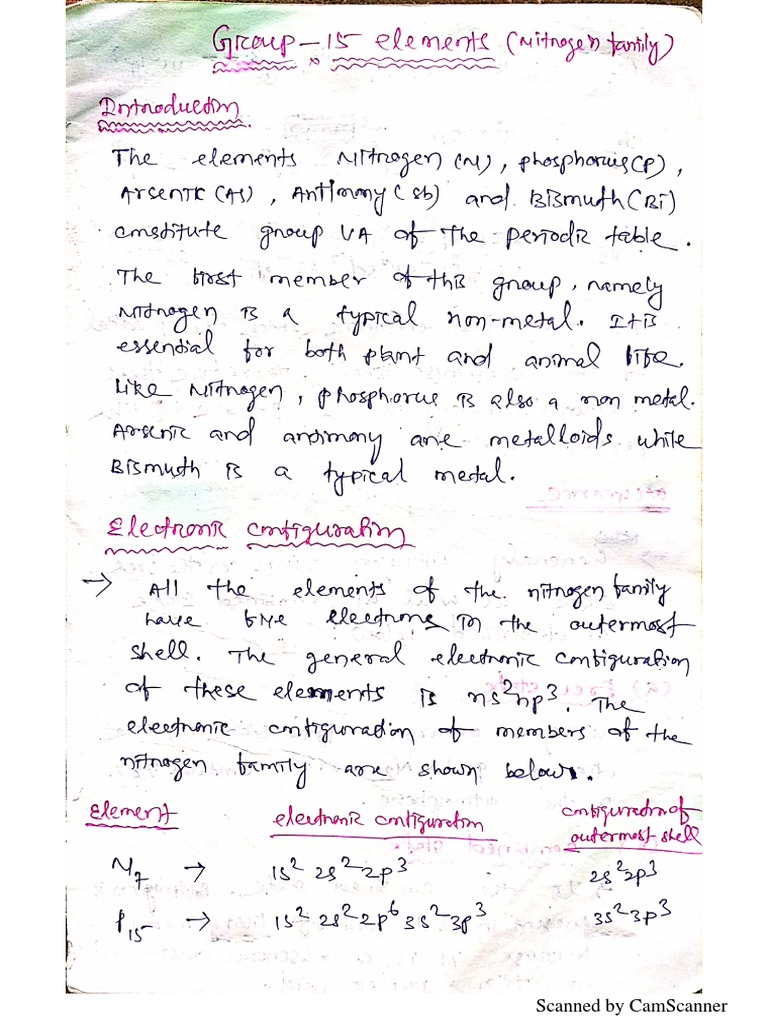 Group-15 elements (Nitrogen family)
Introduction
The elements Nitrogen (N), phosphorus (P),
Arsenic (As), Antimony (Sb) and Bismuth (Bi)
constitute group VA of the periodic table.
The first member of this group, namely
Nitrogen is a typical non-metal. It is
essential for both plant and animal life.
Like Nitrogen, phosphorus is also a non metal.
Arsenic and antimony are metalloids while
Bismuth is a typical metal.
Electronic configuration
→ All the elements of the nitrogen family
have five electrons in the outermost
shell. The general electronic configuration
of these elements is ns²np³. The
electronic configuration of members of the
nitrogen family are shown below.
Element electronic configuration configuration of outermost shell
N₇ → 1s² 2s² 2p³ 2s² 2p³
P₁₅ → 1s² 2s² 2p⁶ 3s² 3p³ 3s² 3p³
Scanned by CamScanner